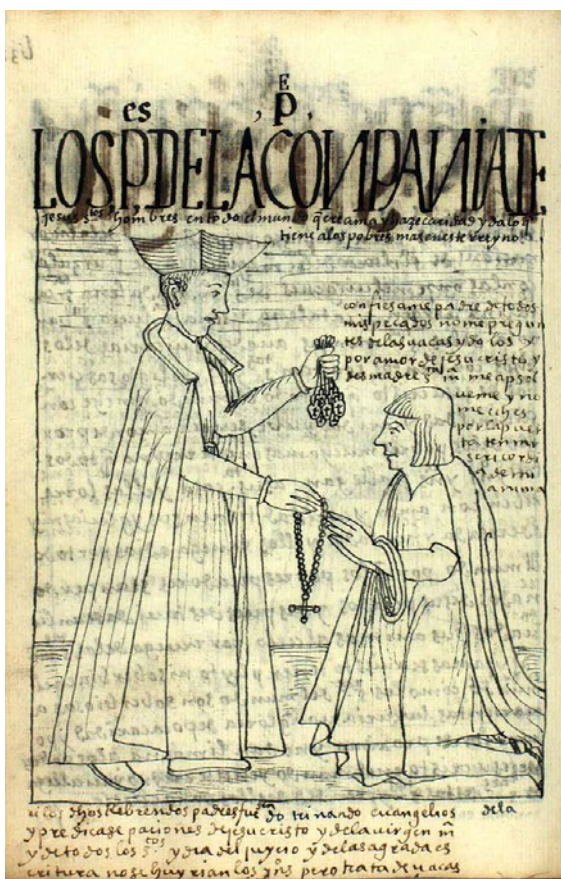 E
es , P
LOS P, DE LA CONPANÍA TE
jesus stos hombres en todo el mundo q̃ creama y haze caridad y da lo q̃
tiene a los pobres mas en este rreyno
confiesame padre de todos
mis pecados no me pregun
tes de las uacas ydolos y
por amor de jesucristo y
des madre sta m̃ me apsol
ueme y no
me eches
por la puer
ta ten mi
sericordi
a de mi
anima
ci los dhos rrebrendos padres fue do trinando euangelios
y predicase paciones de jesucristo y de la uirgen m̃
y de todos los stos y dia del juycio y de la sagrada es
critura no se huyrian los yns pero trata de uacas
de la